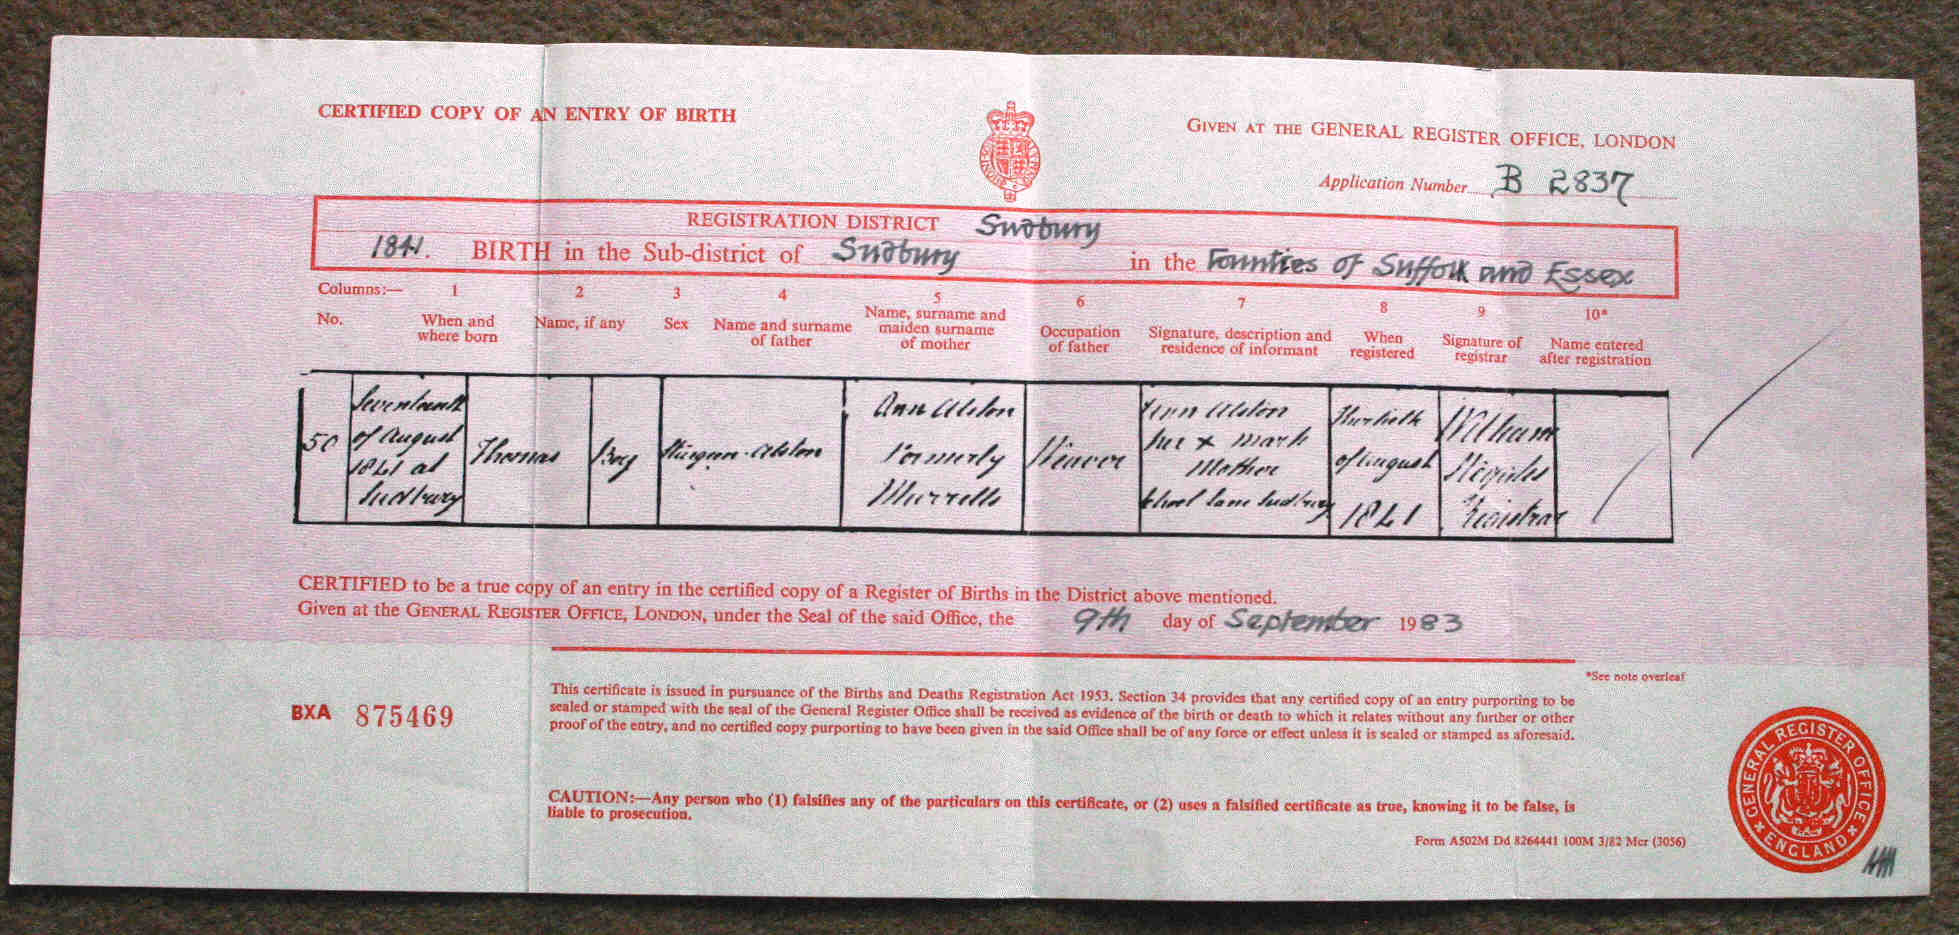 CERTIFIED COPY OF AN ENTRY OF BIRTH
GIVEN AT THE GENERAL REGISTER OFFICE, LONDON
Application Number B 2837
REGISTRATION DISTRICT Sudbury
1841. BIRTH in the Sub-district of Sudbury in the Counties of Suffolk and Essex
Columns:— 1 2 3 4 5 6 7 8 9 10*
No. When and where born Name, if any Sex Name and surname of father Name, surname and maiden surname of mother Occupation of father Signature, description and residence of informant When registered Signature of registrar Name entered after registration
50 Seventeenth of August 1841 at Sudbury Thomas Boy Sturgeon Alston Ann Alston formerly Murrells Weaver Ann Alston her x mark Mother School Lane Sudbury Thirtieth of August 1841 William Registrar
CERTIFIED to be a true copy of an entry in the certified copy of a Register of Births in the District above mentioned.
Given at the GENERAL REGISTER OFFICE, LONDON, under the Seal of the said Office, the 9th day of September 1983
*See note overleaf
BXA 875469
This certificate is issued in pursuance of the Births and Deaths Registration Act 1953. Section 34 provides that any certified copy of an entry purporting to be
sealed or stamped with the seal of the General Register Office shall be received as evidence of the birth or death to which it relates without any further or other
proof of the entry, and no certified copy purporting to have been given in the said Office shall be of any force or effect unless it is sealed or stamped as aforesaid.
CAUTION:—Any person who (1) falsifies any of the particulars on this certificate, or (2) uses a falsified certificate as true, knowing it to be false, is
liable to prosecution.
Form A502M Dd 8264441 100M 3/82 Mcr (3056)
GENERAL REGISTER OFFICE
ENGLAND